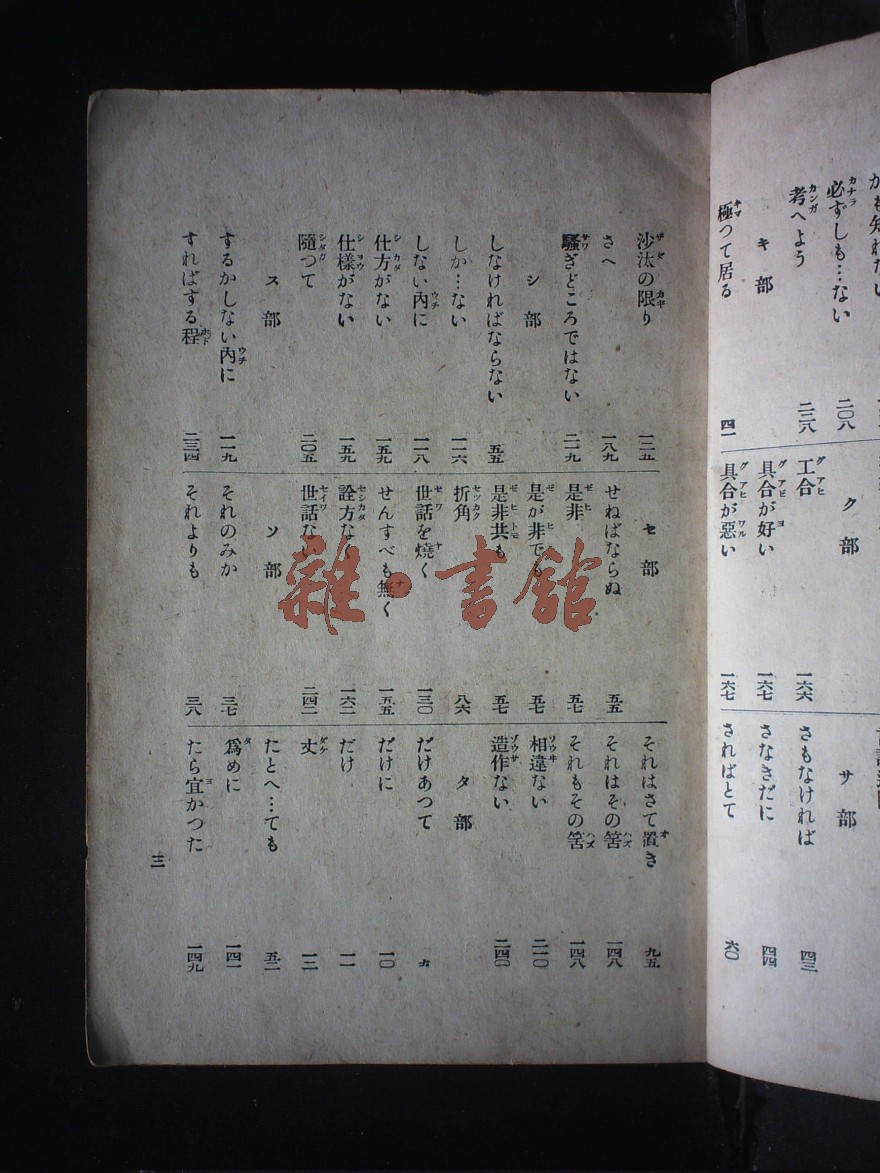 必ずしも…ない 二〇八
考へよう 二三八
キ部
極つて居る 四一
ク部
工合 一六六
具合が好い 一六七
具合が惡い 一六七
サ部
さもなければ 四三
さなきだに 四四
さればとて 六〇
沙汰の限り 一三五
さへ 一八九
騷ぎどころではない 二一九
シ部
しなければならない 五五
しか…ない 一一六
しない內に 一一八
仕方がない 一五九
仕樣がない 一五九
隨つて 二〇五
ス部
するかしない內に 一一九
すればする程 二三四
セ部
せねばならぬ 五五
是非 五七
是が非でも 五七
是非共も 五七
折角 八六
世話を燒く 一三〇
せんすべも無く 一五五
詮方なく 一六二
世話ない 二四二
ソ部
それのみか 三七
それよりも 三八
それはさて置き 九五
それはその筈 一四八
それもその筈 一四八
相違ない 二一〇
造作ない 二四〇
タ部
だけあつて 九
だけに 一〇
だけ 一一
丈 一二
たとへ…ても 五二
爲めに 一四一
たら宜かつた 一四九
三
雜·書館